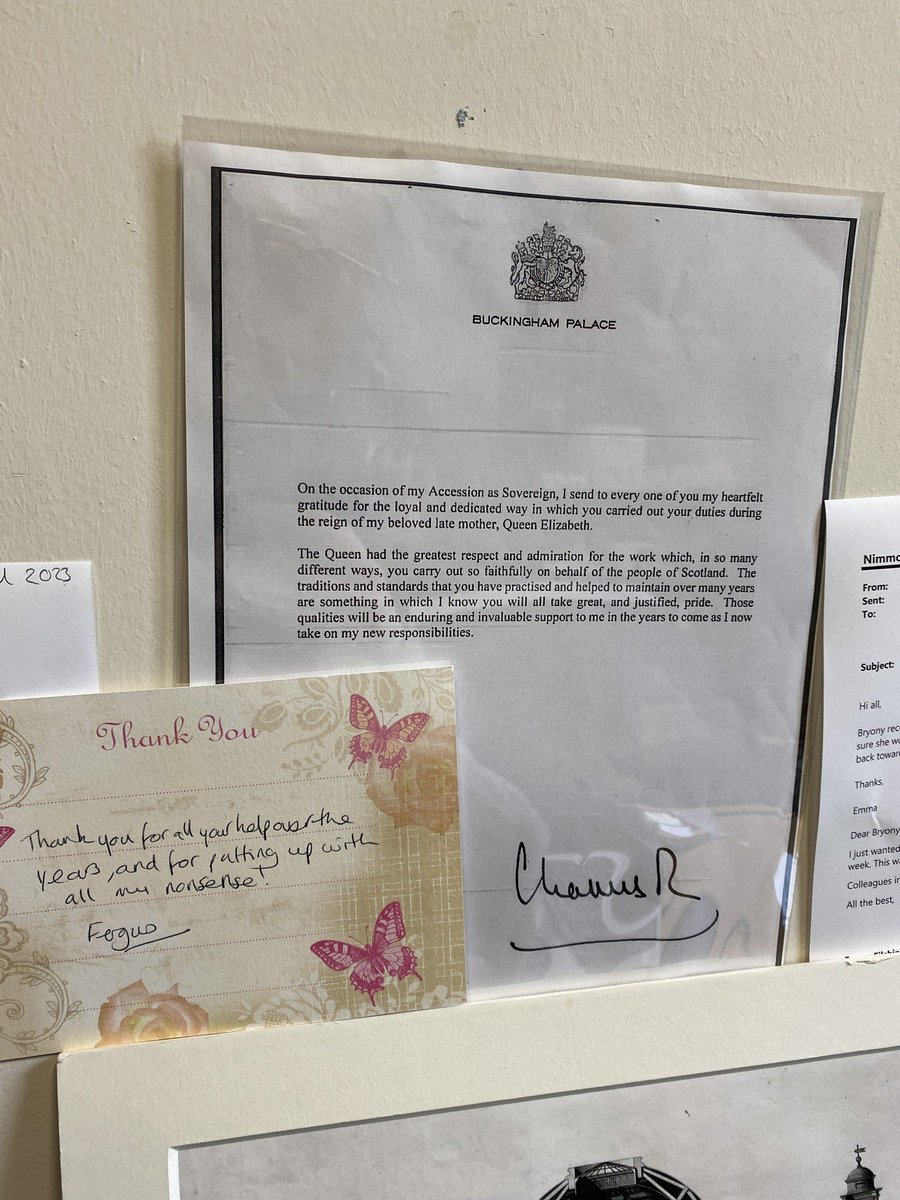 BUCKINGHAM PALACE
On the occasion of my Accession as Sovereign, I send to every one of you my heartfelt
gratitude for the loyal and dedicated way in which you carried out your duties during
the reign of my beloved late mother, Queen Elizabeth.
The Queen had the greatest respect and admiration for the work which, in so many
different ways, you carry out so faithfully on behalf of the people of Scotland. The
traditions and standards that you have practised and helped to maintain over many years
are something in which I know you will all take great, and justified, pride. Those
qualities will be an enduring and invaluable support to me in the years to come as I now
take on my new responsibilities.
Charles R
2023
Thank You
Thank you for all your help over the
years, and for putting up with
all my nonsense!
Fergus
Nimmo
From:
Sent:
To:
Subject:
Hi all,
Bryony rec
sure she wo
back towar
Thanks,
Emma
Dear Bryony
I just wanted
week. This wa
Colleagues in
All the best,